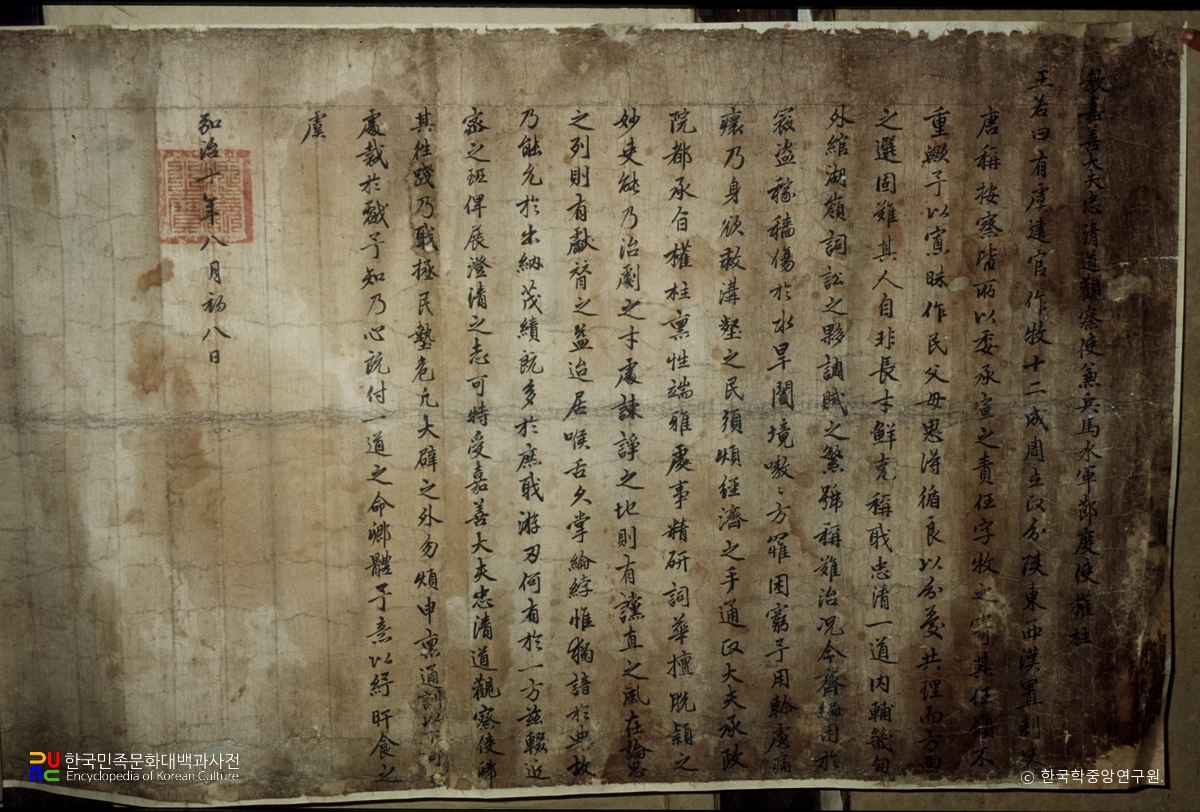 教嘉善大夫忠清道觀察使兼兵馬水軍節度使權柱
王若曰有虞建官作牧十二成周立政分陝東西漢置刺史
唐稱按察皆所以委承宣之責任字牧之寄其任顧不
重歟予以寡昧作民父母思得循良以分憂共理而方面
之選固難其人自非長才鮮克稱職忠清一道內輔畿甸
外綰湖嶺詞訟之夥調賦之繁號稱難治況今齊編困於
寇盜稼穡傷於水旱闔境嗷〻方罹困窮予用軫慮痌
瘝乃身欲救溝壑之民須煩經濟之手通政大夫承政
院都承旨權柱稟性端雅處事精硏詞華擅脫穎之
妙吏能乃治劇之才處諫諍之地則有讜直之風在論思
之列則有獻替之益迨居喉舌久掌綸綍惟獨諳於典故
乃能允於出納茂績旣多於庶職游刃何有於一方玆輟近
密之班俾展澄淸之志可特受嘉善大夫忠淸道觀察使卿
其往踐乃職拯民墊危凡大辟之外勿煩申稟通訓以下
處裁於戲予知乃心旣付一道之命卿體予意以紓旰食之
虞
弘治十年八月初八日
한국민족문화대백과사전
Encyclopedia of Korean Culture
© 한국학중앙연구원.